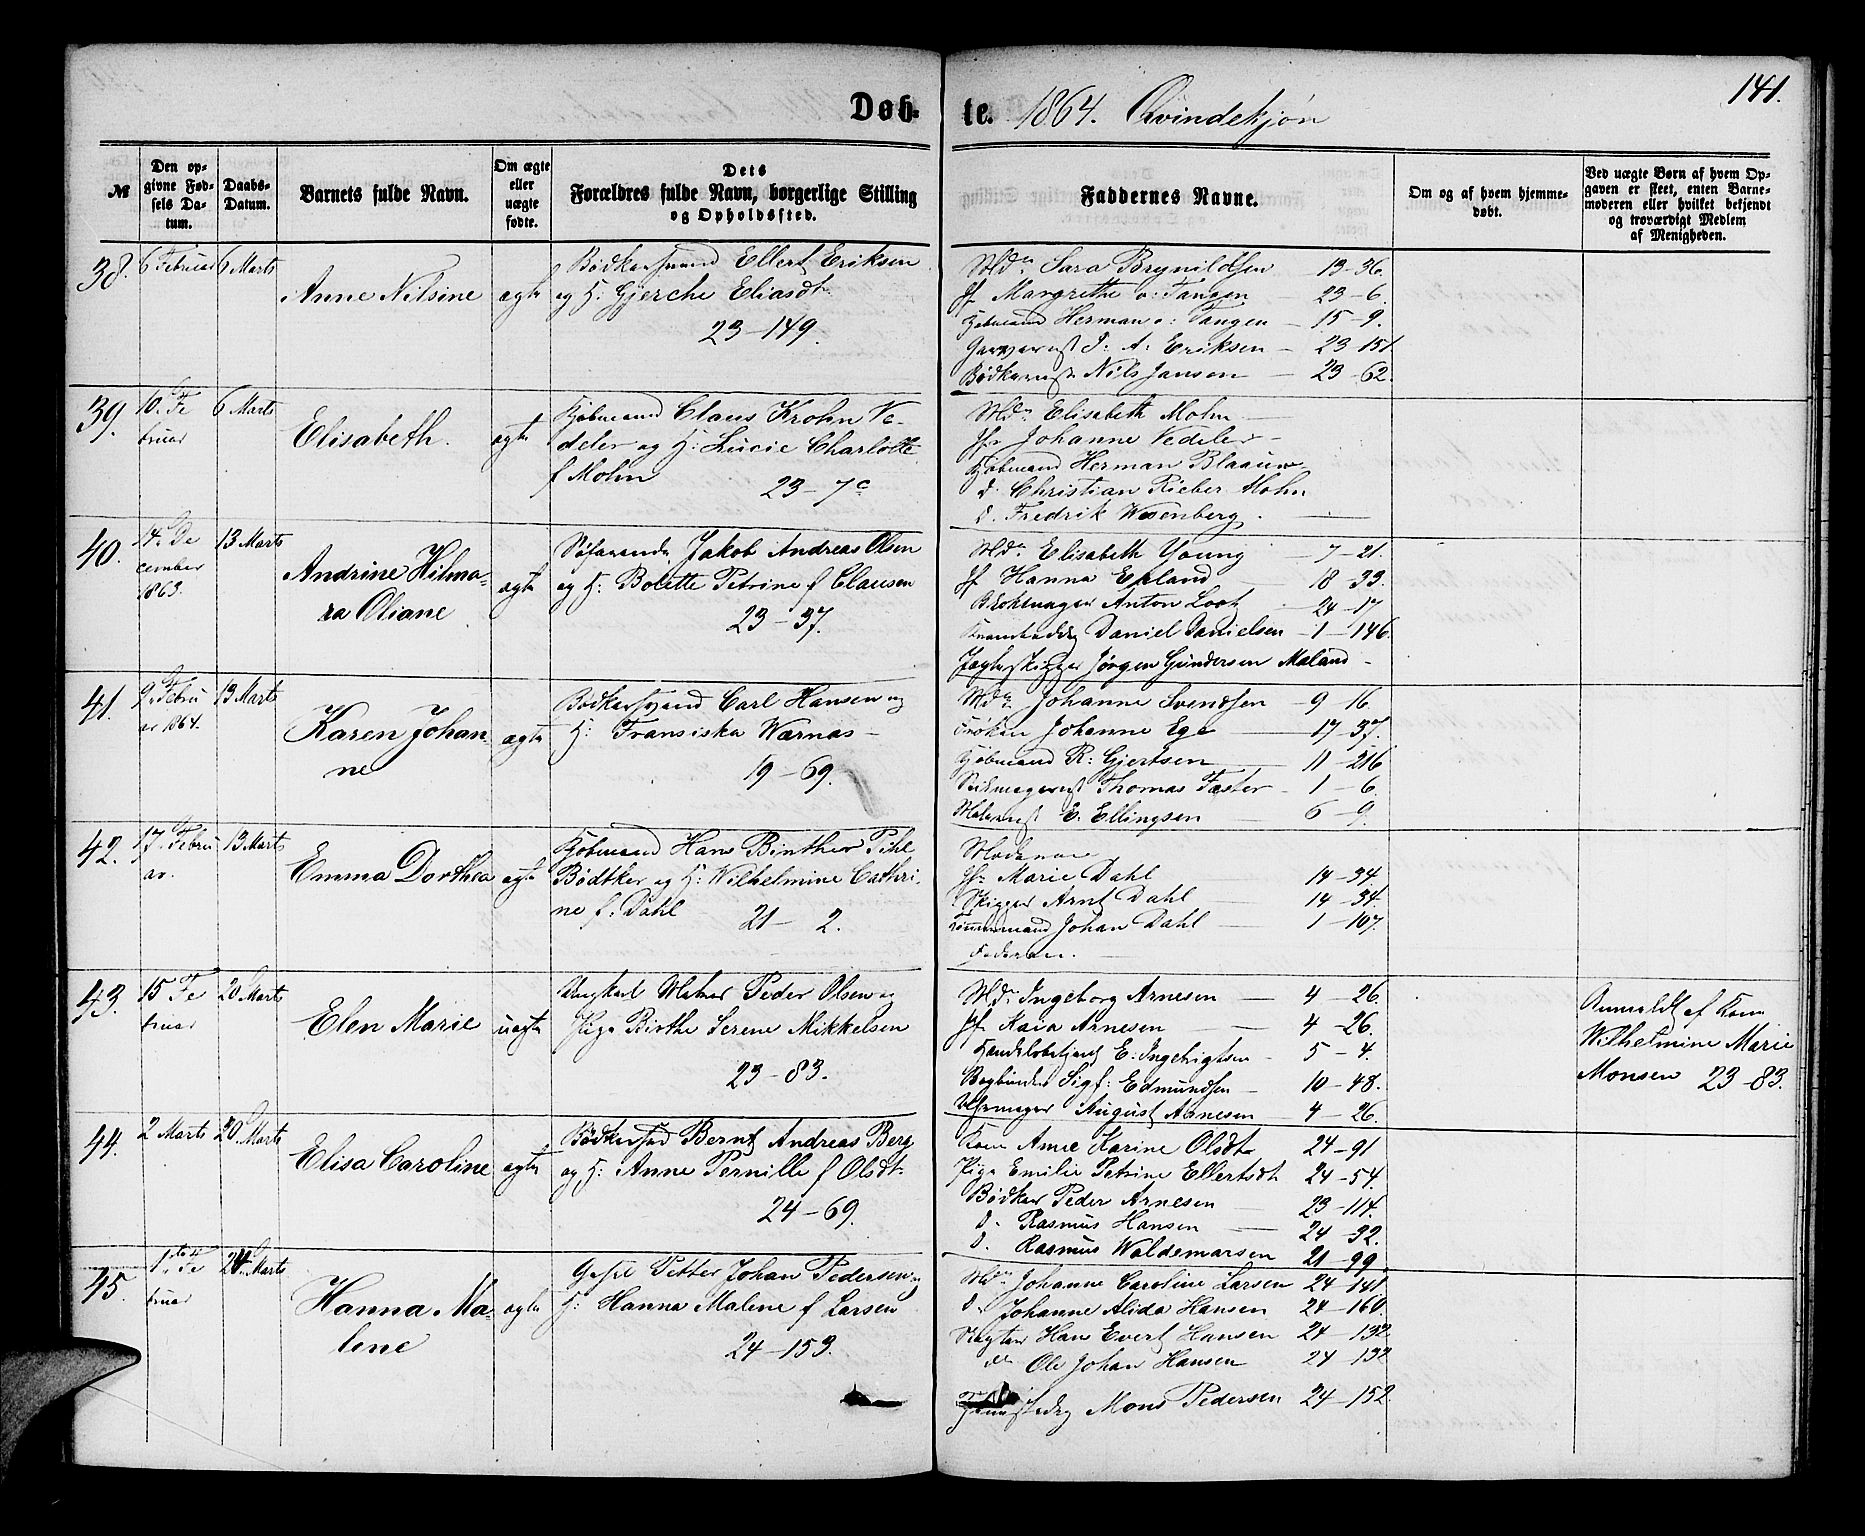 141.
Døb-te. 1864. Qvindekjøn
№
Den opgivne Fødsels Datum.
Daabs-Datum.
Barnets fulde Navn.
Om ægte eller uægte fødte.
Dets Forældres fulde Navn, borgerlige Stilling og Opholdssted.
Faddernes Navne.
Om og af hvem hjemmedøbt.
Ved uægte Børn af hvem Opgaven er skeet, enten Barnemoderen eller hvilket bekjendt og troværdigt Medlem af Menigheden.
38. 6 Februar 6 Marts
Anne Nilsine ægte
Bødkersvend Ellert Eriksen
og H: Gjerche Eliasdt
23-149.
Mdm Sara Brynildsen 13-36.
Jf Margrethe v: Tangen 23-6.
Kjøbmand Herman v: Tangen 15-9.
Garversv J: A: Eriksen 23-151
Bødkersv Nils Jansen 23-62.
39. 10. Februar 6 Marts
Elisabeth. ægte
Kjøbmand Claus Krohn Ve-
deler og H: Lucie Charlotte
f Mohn 23-7c
Mdm Elisabeth Mohn
Jfr Johanne Vedeler
Kjøbmand Herman Blaauw
d. Christian Rieber Mohn
d. Fredrik Wesenberg.
40. 14. December 1863. 13 Marts
Andrine Hilma-
ra Oliane ægte
Søfarende Jakob Andreas Olsen
og H: Bolette Petrine f Clausen
23-37.
Mdm Elisabeth Young 7-21.
Jf Hanna Epland 18-33.
Anton Loot 24-17
Daniel Danielsen 1-146.
Jørgen Gundersen Maland
41. 9. Februar 1864. 13 Marts
Karen Johan-
ne ægte
Bødkersvend Carl Hansen og
H: Fransiska Wærnas
19-69.
Mdm Johanne Svendsen 9-16.
Frøken Johanne Ege 17-37.
Kjøbmand R: Gjertsen 11-216
Thomas Faster 1-6.
Malersv E: Ellingsen 6-9.
42. 17. Februar. 13 Marts
Emma Dorthea ægte
Kjøbmand Hans Binther Pihl
Bødtker og H: Wilhelmine Cathri-
ne f: Dahl 21-2.
Moderen
Jfr Marie Dahl 14-34.
Skipper Arnt Dahl 14-34.
Johan Dahl 1-107.
Faderen.
43. 15 Februar 20 Marts
Elen Marie uægte
Ungkarl Matros Peder Olsen og
Pige Birthe Serene Mikkelsen
23-83.
Mdm Ingeborg Arnesen 4-26.
Jf Kaia Arnesen 4-26.
Handelsbetjent E: Ingebrigtsen 5-4.
Bogbinder Sigf: Edmundsen 10-48.
Uhrmager August Arnesen 4-26.
Anmeldt af Kone
Wilhelmine Marie
Monsen 23-83.
44. 2 Marts 20 Marts
Elisa Caroline ægte
Bødkersvd Bernt Andreas Berg
og H: Anne Pernille f Olsdt.
24-69.
Kone Anne Karine Olsdt 24-91
Pige Emilie Petrine Ellertsdt 24-54.
Bødker Peder Arnesen 23-114.
d. Rasmus Hansen 24-32.
d. Rasmus Waldemarsen 21-99.
45. 1ste Februar 24. Marts
Hanna Ma-
lene ægte
Petter Johan Pedersen og
H: Hanna Malene f Larsen
24-153.
Mdm Johanne Caroline Larsen 24-141
d. Johanne Alida Hansen 24-160.
Hans Evert Hansen 24-132
do Ole Johan Hansen 24-132
Mons Pedersen 24-152.